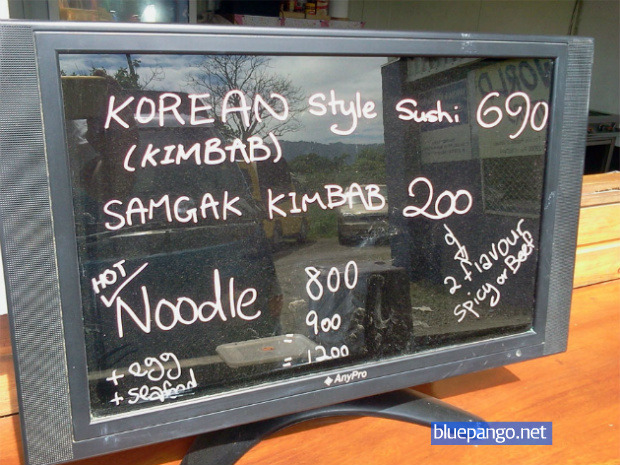 KOREAN Style Sushi 690
(KIMBAB)
SAMGAK KIMBAB 200
2 flavour
Spicy or Beef
HOT
Noodle 800
+ egg = 900
+ seafood = 1200
AnyPro
bluepango.net